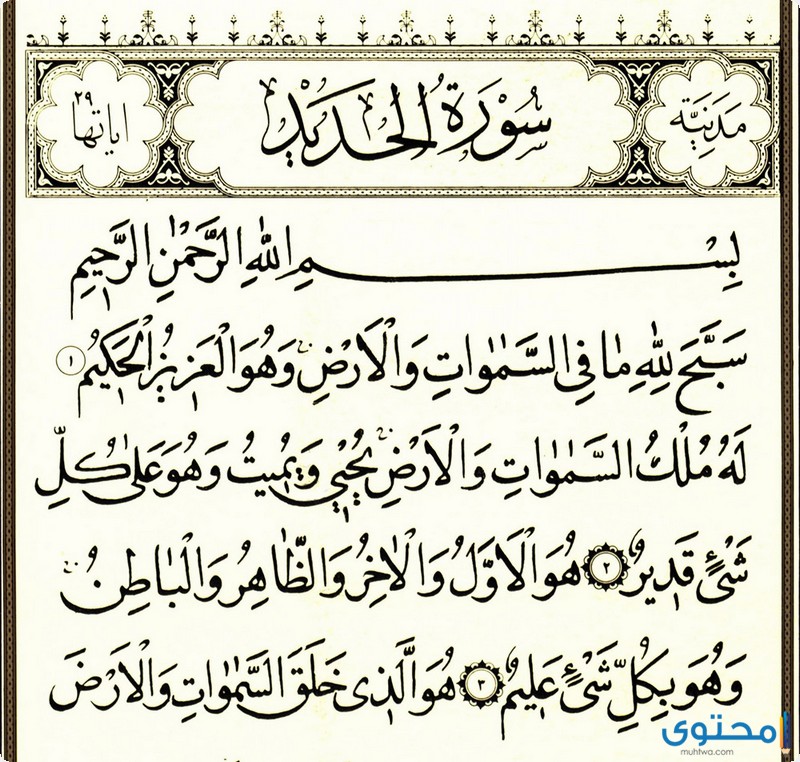 مَدَنِيَّة
سُورَةُ الْحَدِيدِ
اياتها ٢٩
بِسْمِ اللّٰهِ الرَّحْمٰنِ الرَّحِيمِ
سَبَّحَ لِلّٰهِ مَا فِي السَّمٰوَاتِ وَالْاَرْضِ وَهُوَ الْعَزِيزُ الْحَكِيمُ ١
لَهُ مُلْكُ السَّمٰوَاتِ وَالْاَرْضِ يُحْيِي وَيُمِيتُ وَهُوَ عَلٰى كُلِّ
شَيْءٍ قَدِيرٌ ٢ هُوَ الْاَوَّلُ وَالْاٰخِرُ وَالظَّاهِرُ وَالْبَاطِنُ
وَهُوَ بِكُلِّ شَيْءٍ عَلِيمٌ ٣ هُوَ الَّذِي خَلَقَ السَّمٰوَاتِ وَالْاَرْضَ
محتوى
muhtwa.com